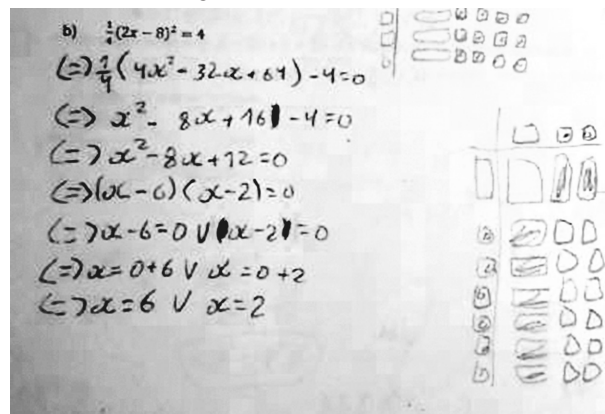 b) 1/4(2x − 8)² = 4
(=) 1/4 (4x² - 32x + 64) - 4 = 0
(=) x² - 8x + 16 - 4 = 0
(=) x² - 8x + 12 = 0
(=) (x - 6) (x - 2) = 0
(=) x - 6 = 0 V x - 2 = 0
(=) x = 0 + 6 V x = 0 + 2
(=) x = 6 V x = 2